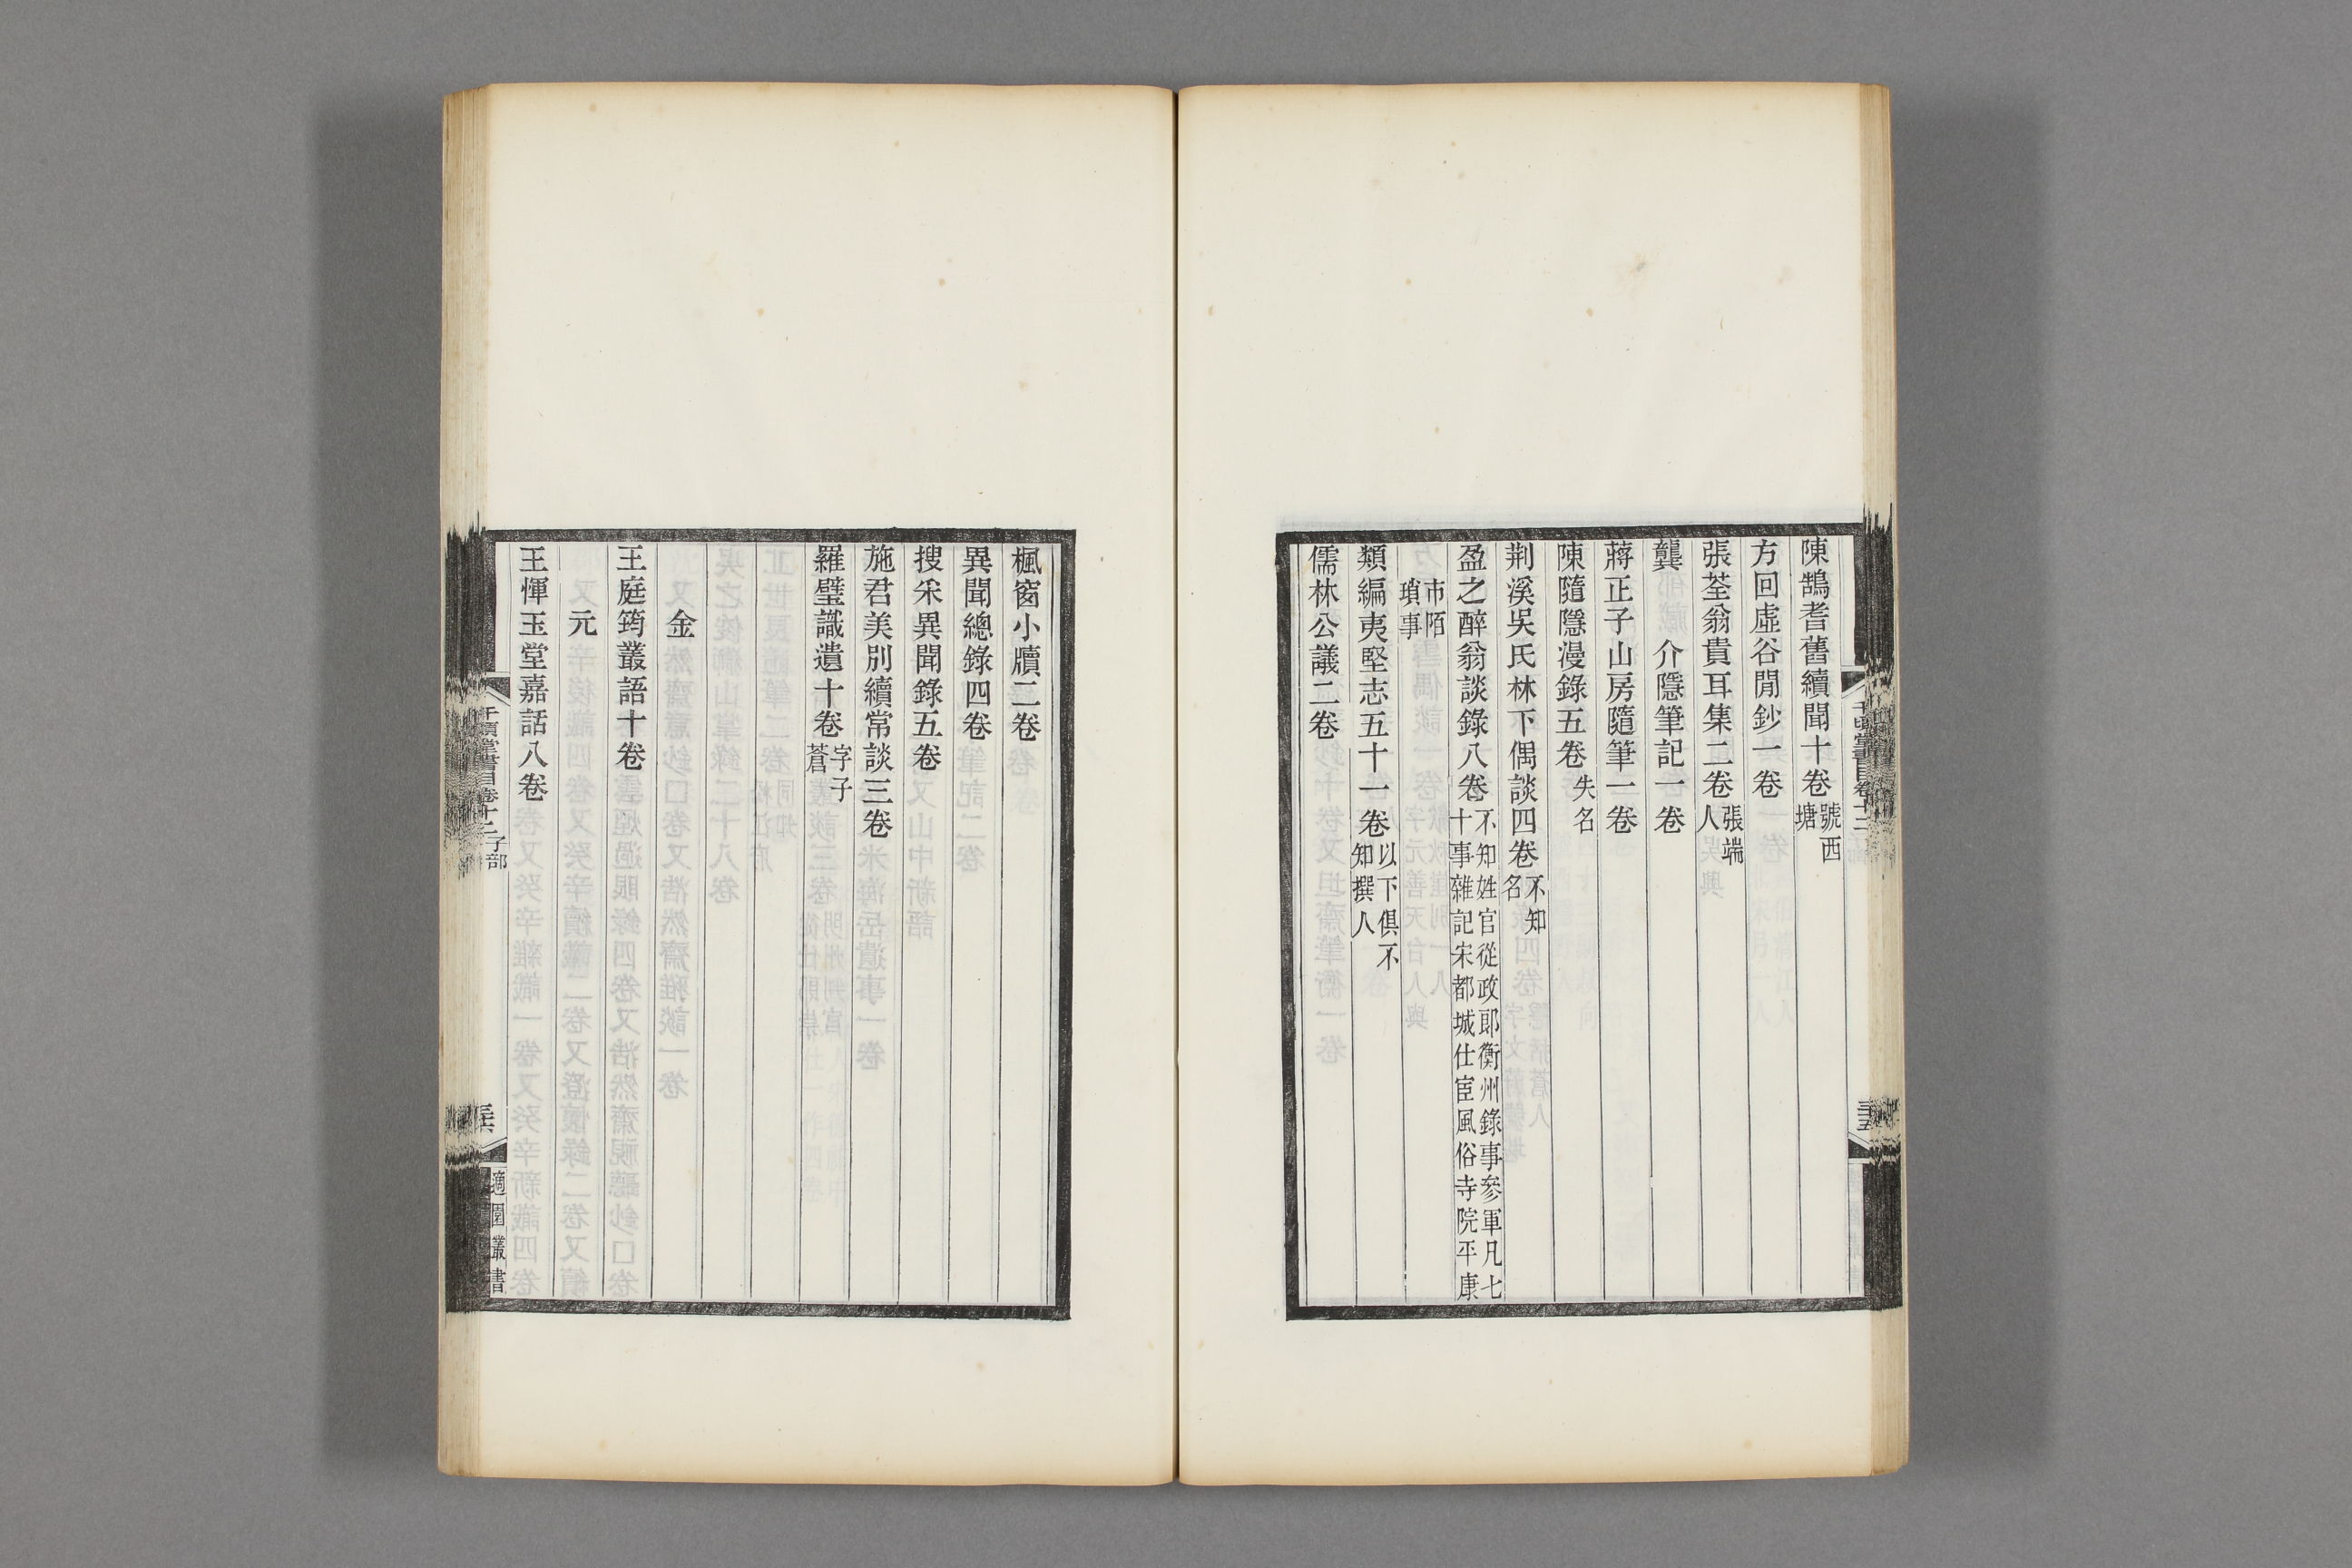 陳鵠耆舊續聞十卷號西塘
方回虛谷閒鈔一卷
張荃翁貴耳集二卷張端人
龔　介隱筆記一卷
蔣正子山房隨筆一卷
陳隨隱漫錄五卷失名
荆溪吳氏林下偶談四卷不知名
盈之醉翁談錄八卷不知姓官從政郎衡州錄事參軍凡七十事雜記宋都城仕宦風俗寺院平康
市陌瑣事
類編夷堅志五十一卷以下俱不知撰人
儒林公議二卷
楓窗小牘二卷
異聞總錄四卷
搜采異聞錄五卷
施君美別續常談三卷
羅璧識遺十卷字子蒼
金
王庭筠叢語十卷
元
王惲玉堂嘉話八卷
千頃堂書目卷十二 子部
適園叢書